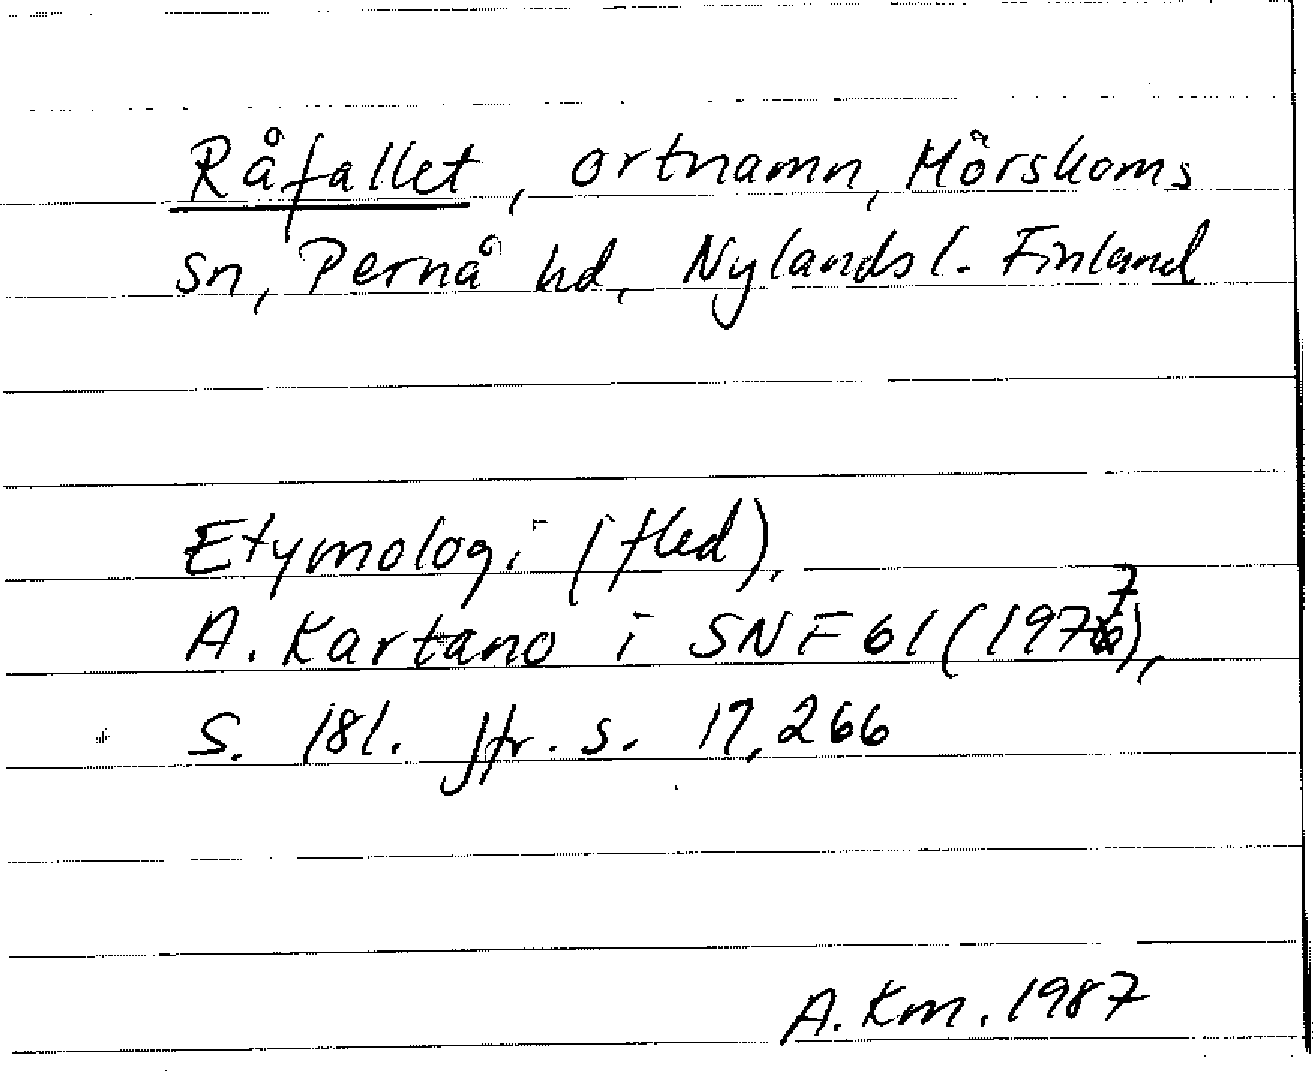 Råfallet, ortnamn, Mörskoms
sn, Pernå hd, Nylands l. Finland
Etymologi (fled),
A. Kartano i SNF 61 (1977),
S. 181. Jfr. s. 17, 266
A. Km. 1987